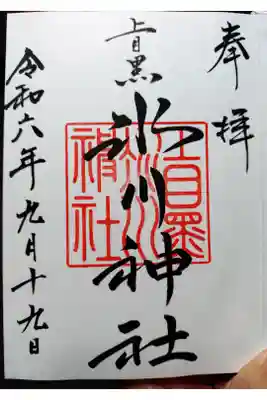 奉拝
上目黒
氷川神社
令和六年九月十九日
上目黒氷川神社